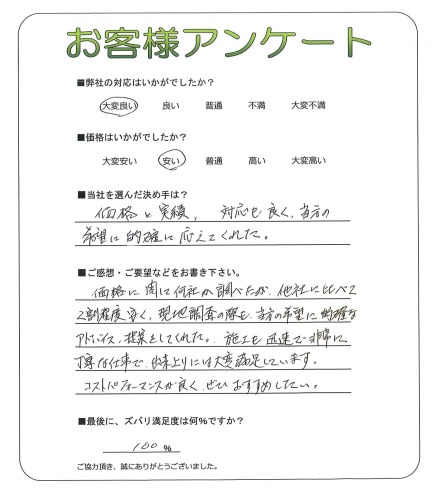 お客様アンケート
■弊社の対応はいかがでしたか？
大変良い 良い 普通 不満 大変不満
■価格はいかがでしたか？
大変安い 安い 普通 高い 大変高い
■当社を選んだ決め手は？
価格と実績、対応も良く、当方の
希望に的確に応えてくれた。
■ご感想・ご要望などをお書き下さい。
価格に関し何社か調べたが、他社に比べて
2割程度安く、現地調査の際も、当方の希望に的確な
アドバイス、提案をしてくれた。施工も迅速で非常に
丁寧な仕事で、出来上りには大変満足しています。
コストパフォーマンスが良く、ぜひおすすめしたい。
■最後に、ズバリ満足度は何%ですか？
100 %
ご協力頂き、誠にありがとうございました。